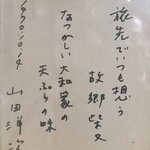 旅先でいつも想う
故郷柴又
なつかしい大和家の
天ぷらの味
山田洋次